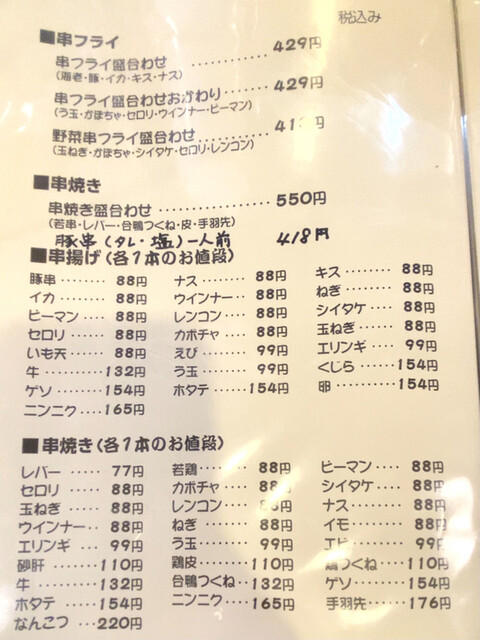 税込み
■串フライ
串フライ盛合わせ ・・・・・・・・・・ 429円
(海老・豚・イカ・キス・ナス)
串フライ盛合わせおかわり ・・・・・・ 429円
(う玉・かぼちゃ・セロリ・ウインナー・ピーマン)
野菜串フライ盛合わせ ・・・・・・・・
(玉ねぎ・かぼちゃ・シイタケ・セロリ・レンコン)
■串焼き
串焼き盛合わせ ・・・・・・・・・・ 550円
(若串・レバー・合鴨つくね・皮・手羽先)
豚串(タレ・塩)一人前 418円
■串揚げ(各1本のお値段)
豚串 ・・・・・ 88円 ナス ・・・・・ 88円 キス ・・・・・ 88円
イカ ・・・・・ 88円 ウインナー ・・ 88円 ねぎ ・・・・・ 88円
ピーマン ・・・ 88円 レンコン ・・・ 88円 シイタケ ・・・ 88円
セロリ ・・・・ 88円 カボチャ ・・・ 88円 玉ねぎ ・・・・ 88円
いも天 ・・・・ 88円 えび ・・・・・ 99円 エリンギ ・・・ 99円
牛 ・・・・・ 132円 う玉 ・・・・・ 99円 くじら ・・・・ 154円
ゲソ ・・・・ 154円 ホタテ ・・・・ 154円 卵 ・・・・・ 154円
ニンニク ・・・・ 165円
■串焼き(各1本のお値段)
レバー ・・・・・ 77円 若鶏 ・・・・・ 88円 ピーマン ・・・ 88円
セロリ ・・・・・ 88円 カボチャ ・・・ 88円 シイタケ ・・・ 88円
玉ねぎ ・・・・ 88円 レンコン ・・・ 88円 ナス ・・・・・ 88円
ウインナー ・・ 88円 ねぎ ・・・・・ 88円 イモ ・・・・・ 88円
エリンギ ・・・ 99円 う玉 ・・・・・ 99円 エビ ・・・・・ 99円
砂肝 ・・・・・ 110円 鶏皮 ・・・・・ 110円 鶏つくね ・・・ 110円
牛 ・・・・・・ 132円 合鴨つくね ・・ 132円 ゲソ ・・・・・ 154円
ホタテ ・・・・ 154円 ニンニク ・・・ 165円 手羽先 ・・・・ 176円
なんこつ ・・・ 220円